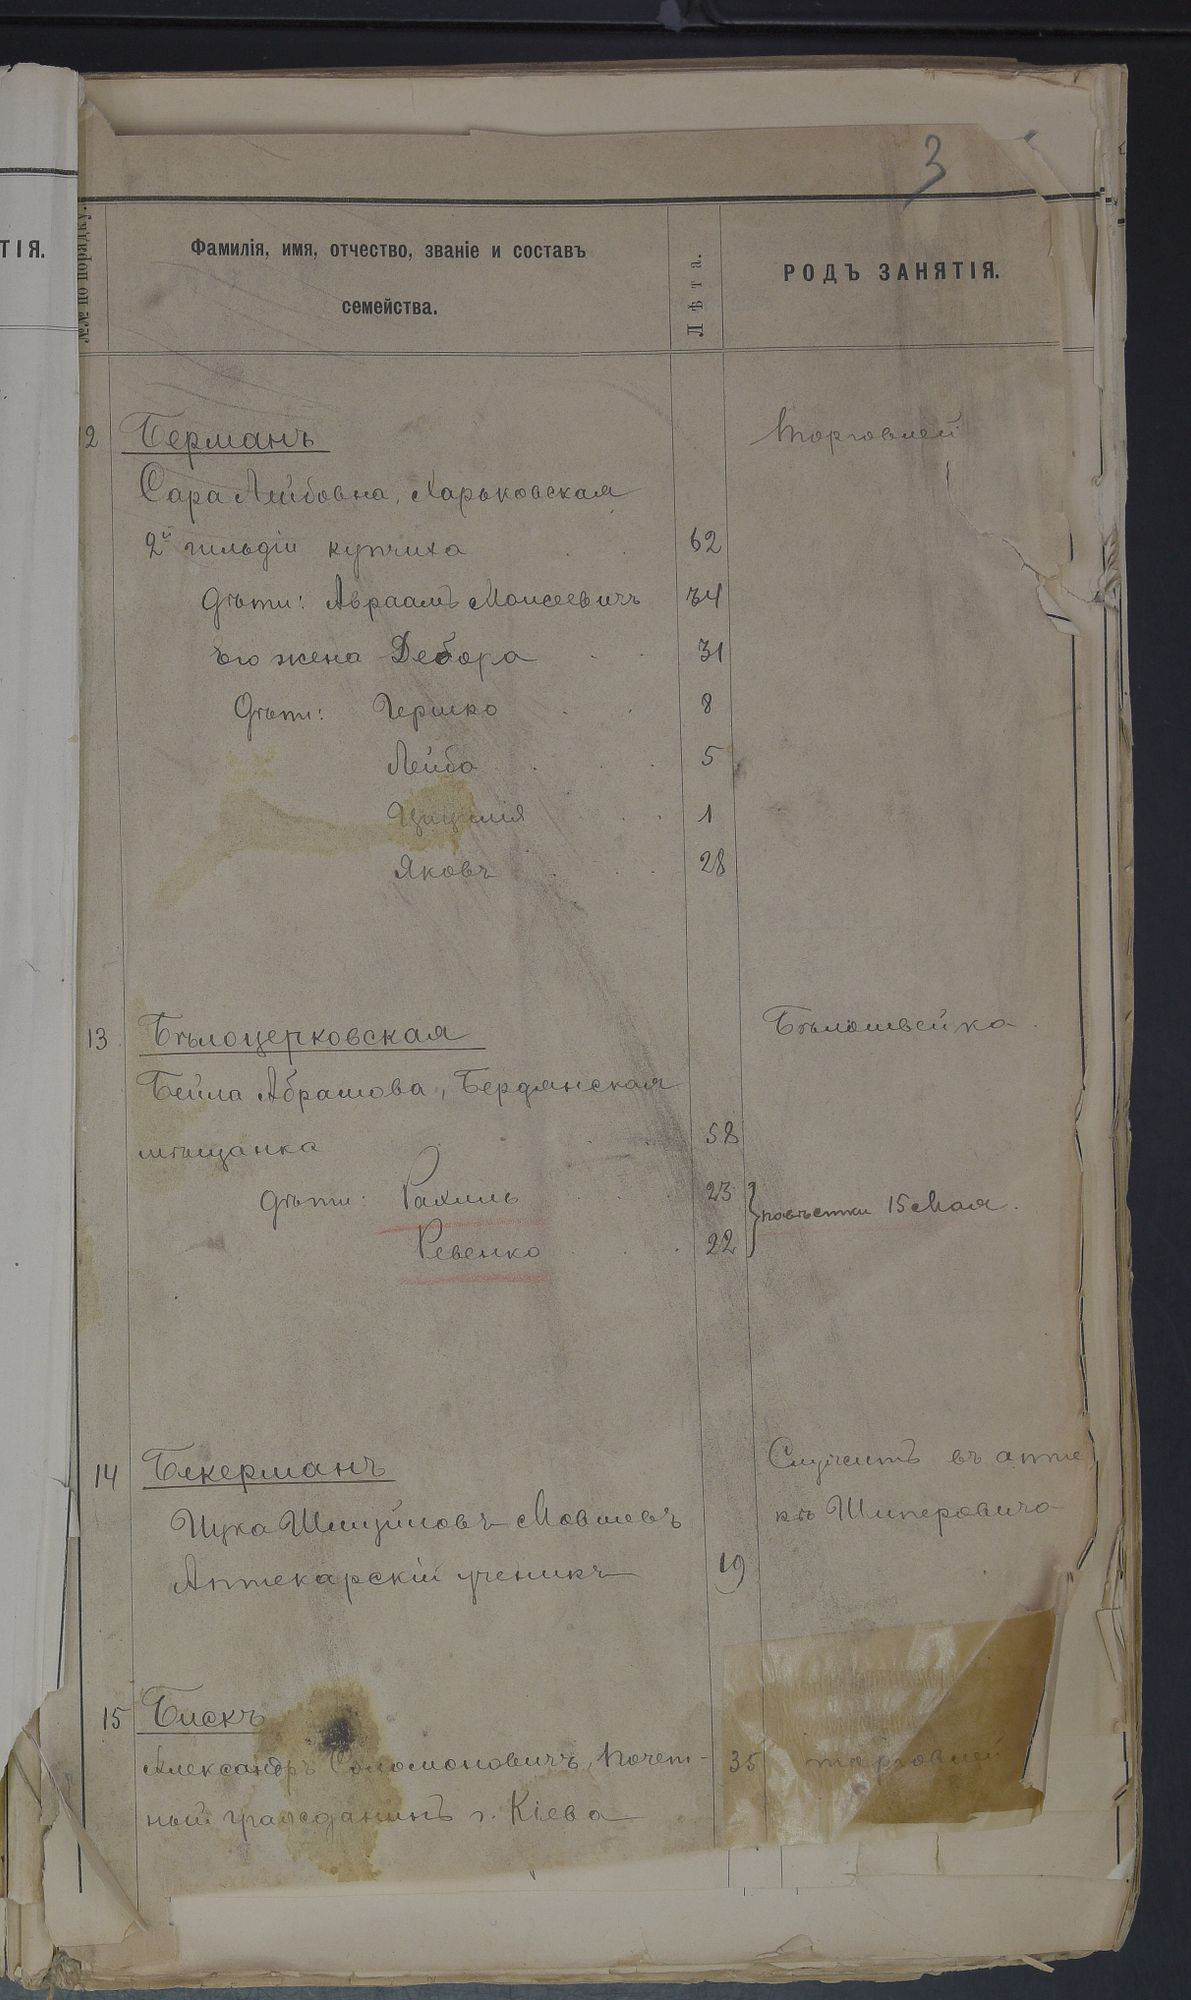 3
ТІЯ.
№№ по порядку.
Фамилія, имя, отчество, званіе и составъ
семейства.
Лѣта.
РОДЪ ЗАНЯТІЯ.
12 Берманъ Торговлей
Сара Лейбовна, Харьковская
2й гильдіи купчиха 62
Дѣти: Авраамъ Моисеевичъ 34
Его жена Дебора 31
Дѣти: Гершко 8
Лейба 5
Цицилія 1
Яковъ 28
13 Бѣлоцерковская Бѣлошвейка
Бейла Абрамова, Бердянская
мѣщанка 58
Дѣти: Рахиль 23
повѣстки 15 Мая.
Ревекка 22
14 Бекерманъ Служитъ въ апте
Ицка Шмуйловъ Мовшевъ кѣ Шперовича
Аптекарскій ученикъ 19
15 Бискъ
Александръ Соломоновичъ, Почет- 35 торговлей
ный гражданинъ г. Кіева